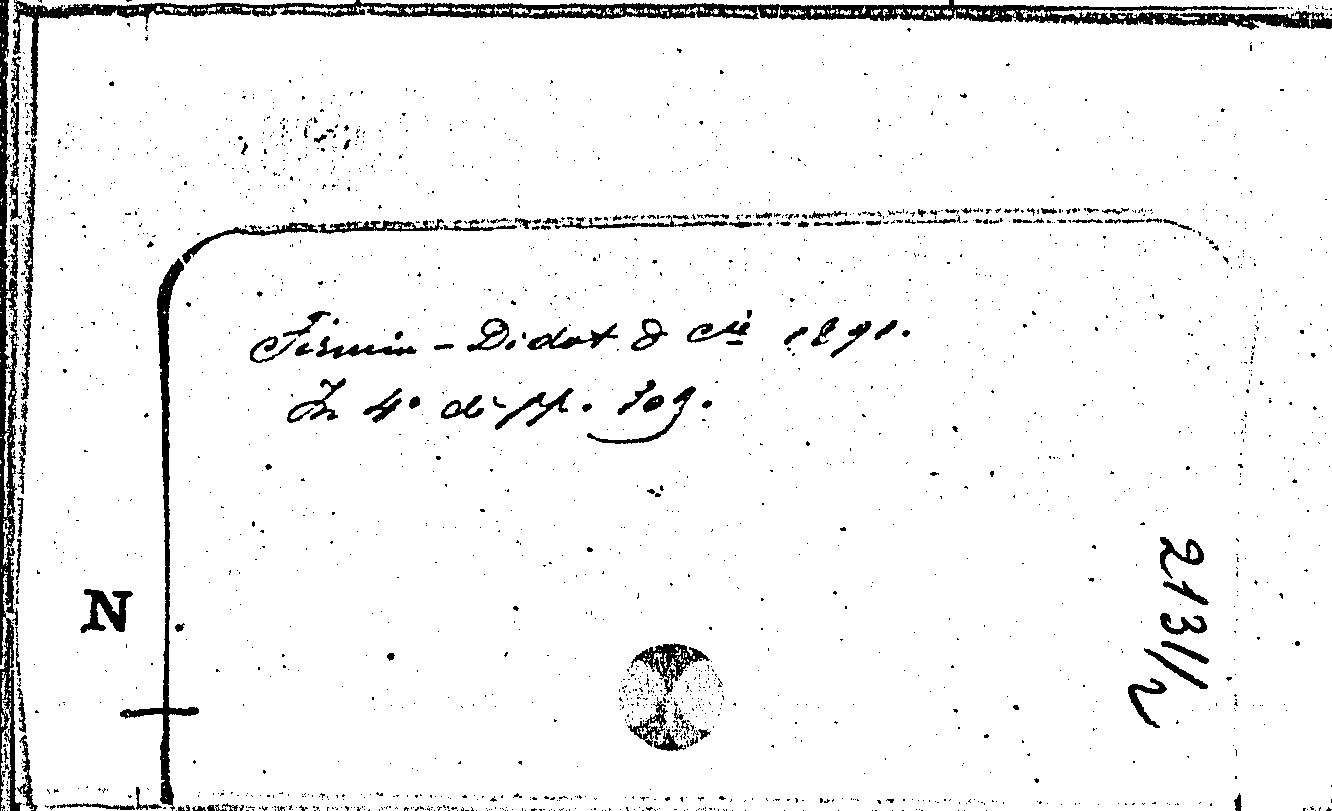 Firmin-Didot & Cie 1891.
In 4° di pp. 709.
N
2131/2